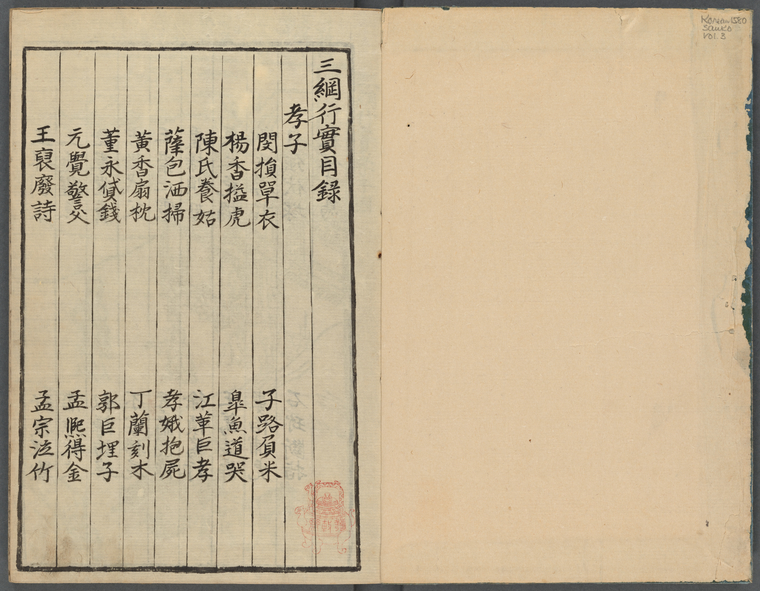 三綱行實目録
孝子
閔損單衣 子路負米
楊香搤虎 皐魚道哭
陳氏養姑 江革巨孝
薛包洒掃 孝娥抱屍
黃香扇枕 丁蘭刻木
董永貸錢 郭巨埋子
元覺警父 孟熙得金
王裒廢詩 孟宗泣竹
Korean 1580
Sanko
vol. 3